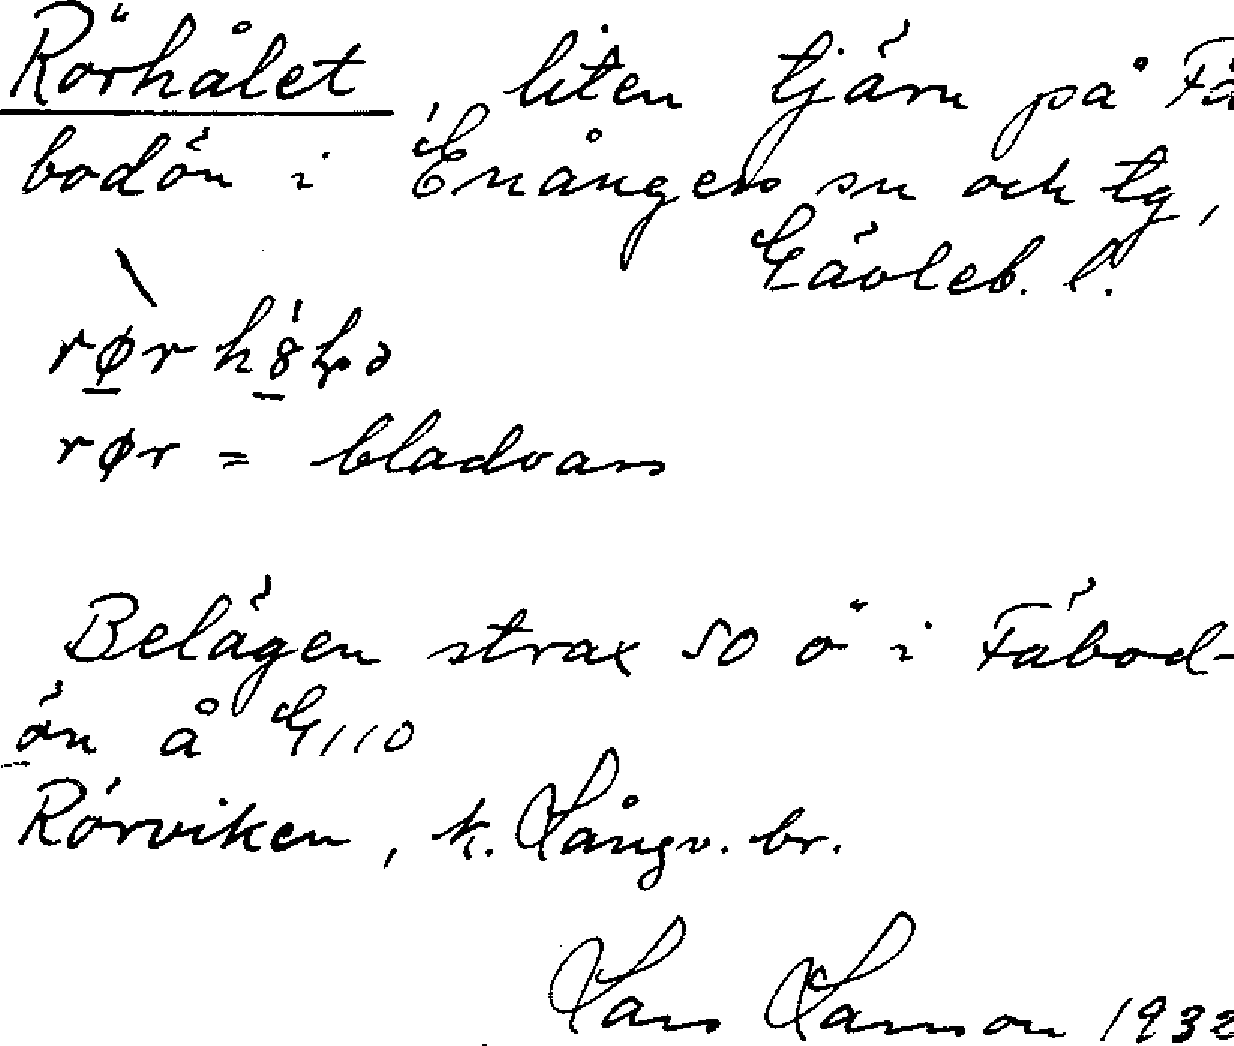 Rörhålet, liten tjärn på Få
bodön i Enångers sn och tg,
Gävleb. l.
rør = bladvass
Belägen strax SO ö i Fåbod-
ön å G110
Rörviken, k. Långv. br.
Lars Larsson 1932